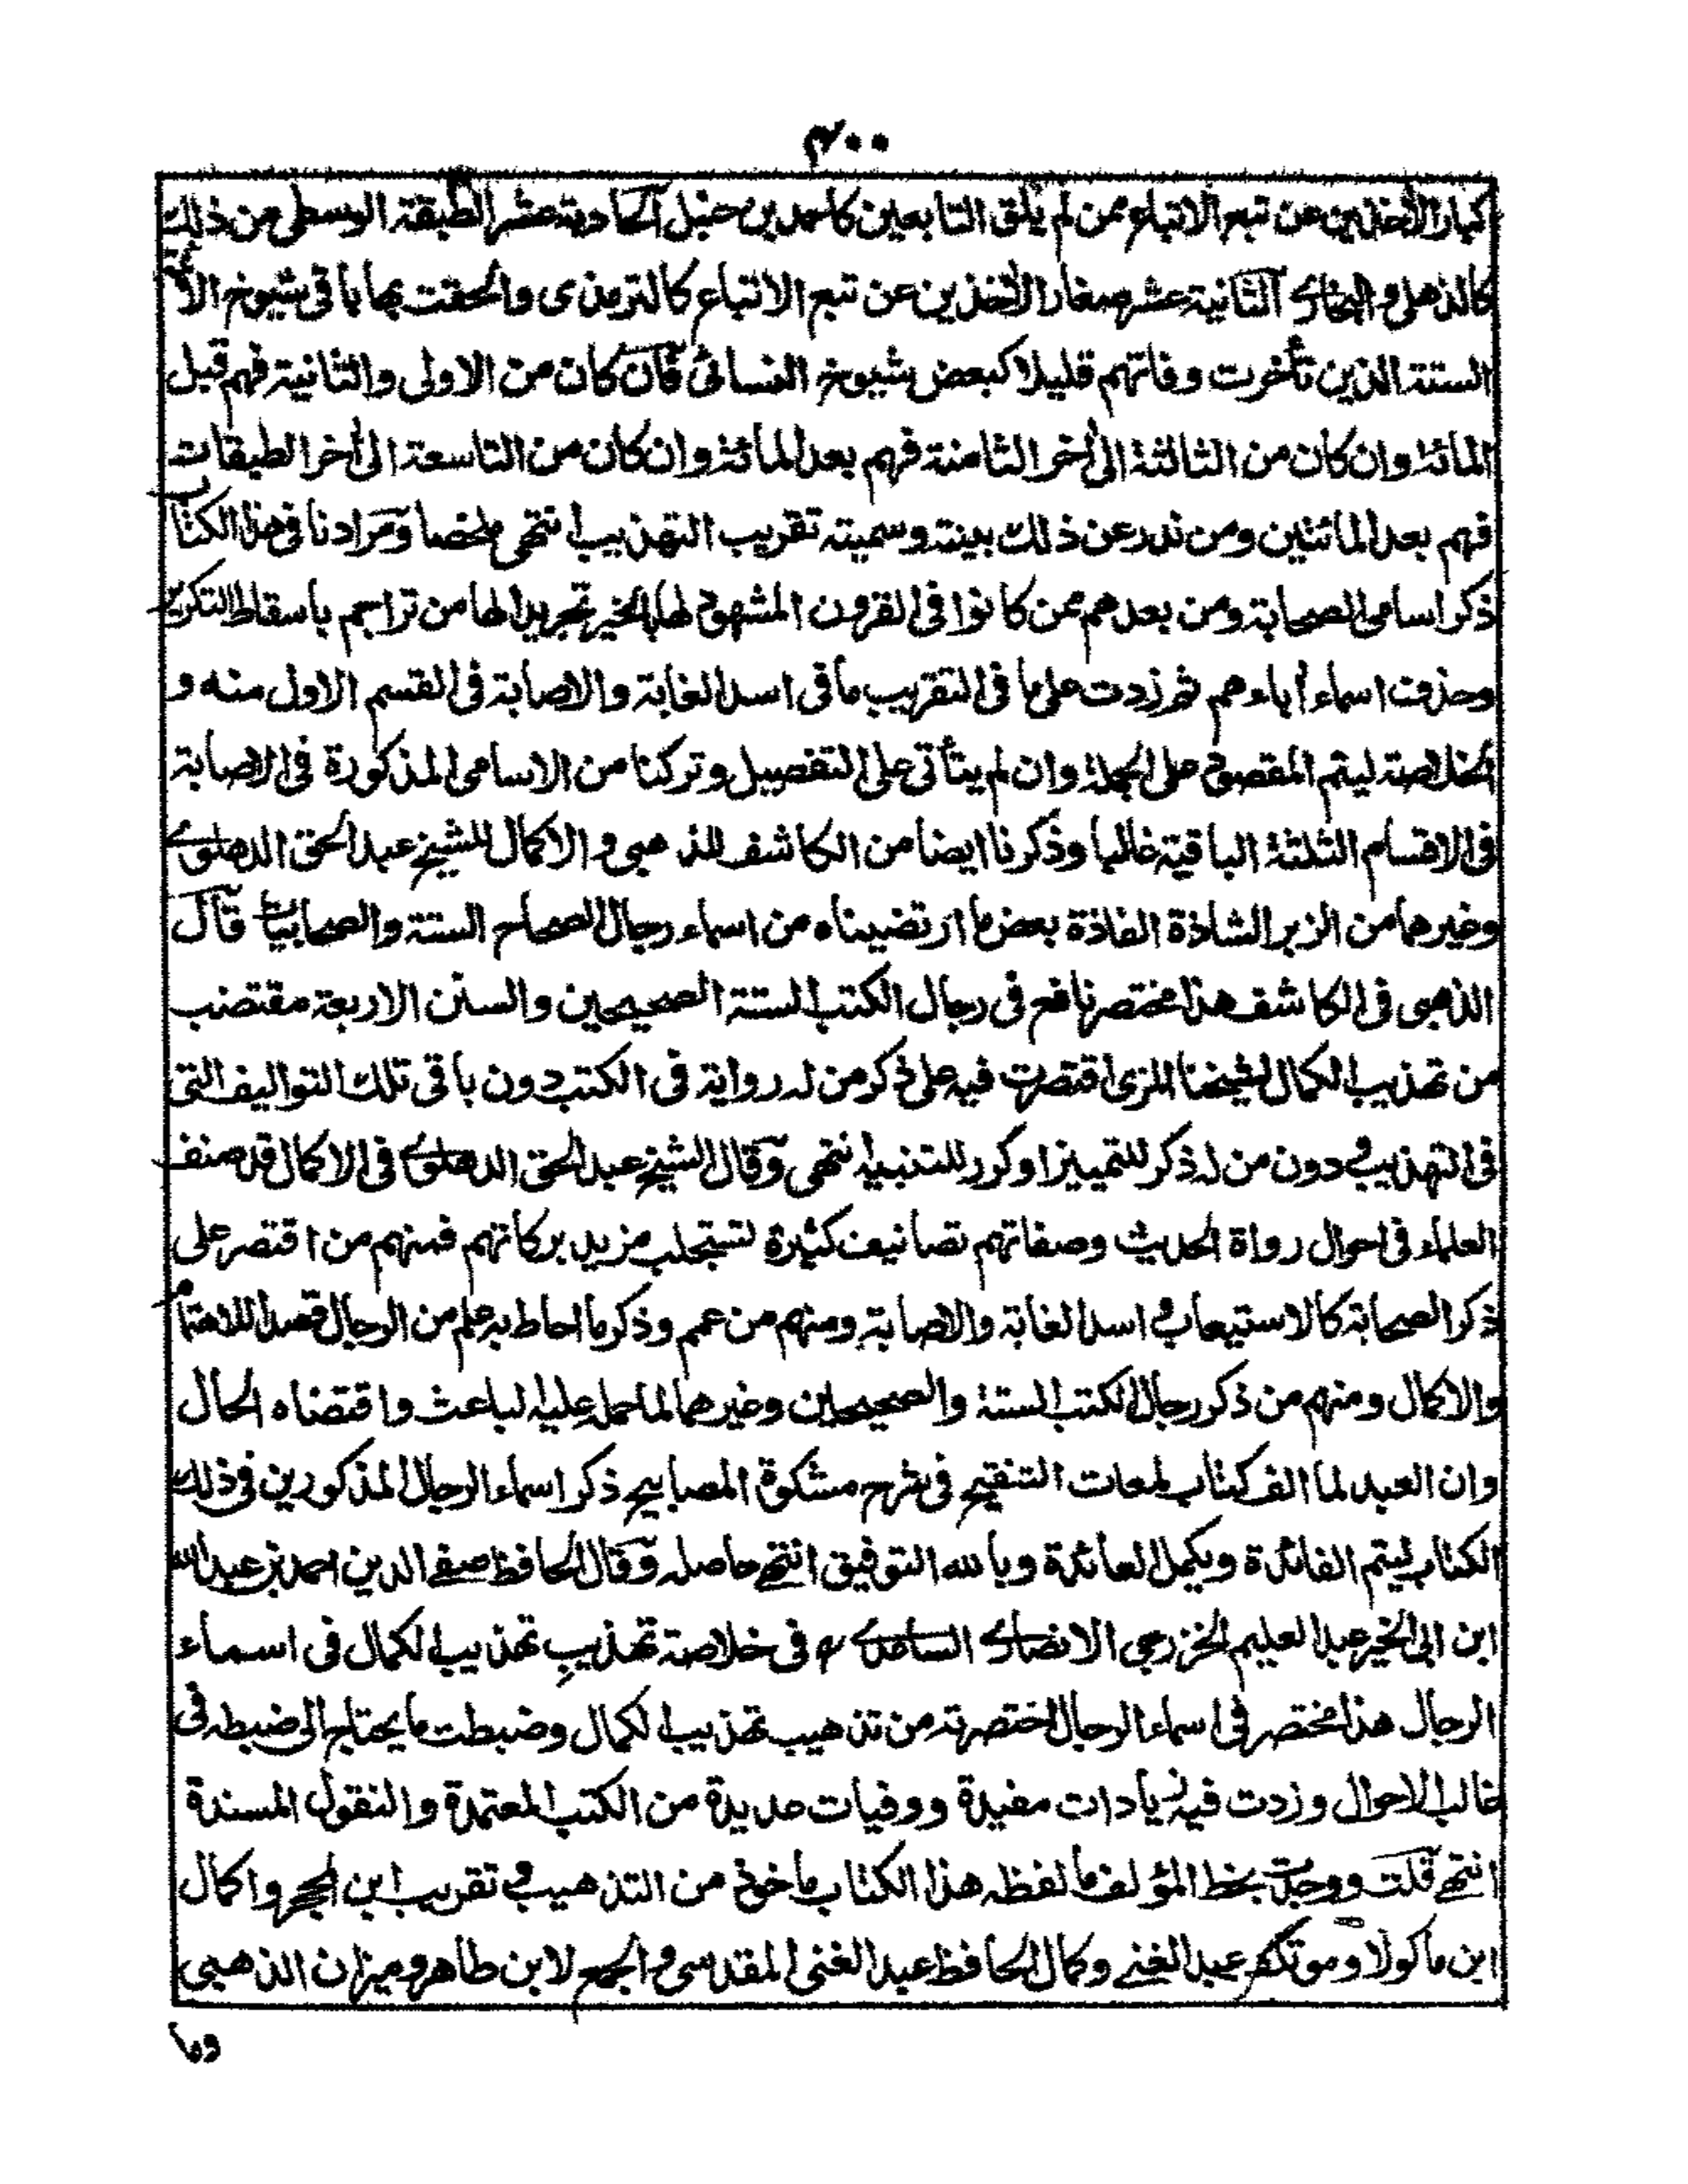 ٣٠٠
كبار الأخذين عن تبع الاتباع ممن لم يلق التابعين كاحمد بن حنبل آلحادية عشر الطبقة الوسطى من ذلك
كالذهلى والبخارى آلثانية عشر صغار الأخذين عن تبع الاتباع كالترمذى والحقت بها باقى شيوخ الأئمة
الستة الذين تأخرت وفاتهم قليلا كبعض شيوخ النسائى فآن كان من الاولى والثانية فهم قبل
المائة وان كان من الثالثة الى أخر الثامنة فهم بعد المائة وان كان من التاسعة الى أخر الطبقات
فهم بعد المائتين ومن ندر عن ذلك بينته وسميته تقريب التهذيب انتهى ملخصا ومرادنا فى هذا الكتاب
ذكر اسامى الصحابة ومن بعدهم ممن كانوا فى القرون المشهود لها بالخير تجريدا لها من تراجم باسقاط التكرير
وحذف اسماء أباءهم ثم زدت على ما فى التقريب ما فى اسد الغابة والاصابة فى القسم الاول منه و
الخلاصة ليتم المقصود على الجملة وان لم يتأتى على التفصيل وتركنا من الاسامى المذكورة فى الاصابة
فى الاقسام الثلثة الباقية غالبا وذكرنا ايضا من الكاشف للذهبى والاكمال للشيخ عبد الحق الدهلوى
وغيرهما من الزبر الشاذة الفاذة بعض ما ارتضيناه من اسماء رجال الصحاح الستة والصحابيات قآل
الذهبى فى الكاشف هذا مختصر نافع فى رجال الكتب الستة الصحيحين والسنن الاربعة مقتضب
من تهذيب الكمال لشيخنا المزى اقتصرت فيه على ذكر من له رواية فى الكتب دون باقى تلك التواليف التى
فى التهذيب ودون من له ذكر للتمييز او كرر للتنبيه انتهى وقآل الشيخ عبد الحق الدهلوى فى الاكمال قد صنف
العلماء فى احوال رواة الحديث وصفاتهم تصانيف كثيرة لتستجلب مزيد بركاتهم فمنهم من اقتصر على
ذكر الصحابة كالاستيعاب واسد الغابة والاصابة ومنهم من عمم وذكر ما احاط به علم من الرجال قصدا للاهتمام
والاكمال ومنهم من ذكر رجال الكتب الستة والصحيحين وغيرهما لما حمله عليه الباعث واقتضاه الحال
وان العبد لما الف كتاب لمعات التنقيح فى شرح مشكوة المصابيح ذكر اسماء الرجال المذكورين فى ذلك
الكتاب ليتم الفائدة ويكمل العائدة وبالله التوفيق انتهى حاصله وقآل الحافظ صفى الدين احمد بن عبد الله
ابن ابى الخير عبد العليم الخزرجى الانصارى الساعدى فى خلاصة تهذيب تهذيب الكمال فى اسماء
الرجال هذا مختصر فى اسماء الرجال اختصرته من تذهيب تهذيب الكمال وضبطت ما يحتاج الى ضبطه فى
غالب الاحوال وزدت فيه زيادات مفيدة ووفيات عديدة من الكتب المعتمدة والنقول المسندة
انتهى قلت ووجدت بخط المؤلف ما لفظه هذا الكتاب ماخوذ من التذهيب وتقريب ابن الحجر واكمال
ابن ماكولا وموتلف عبد الغنى وكمال الحافظ عبد الغنى المقدسى والجمع لابن طاهر وميزان الذهبى
وما